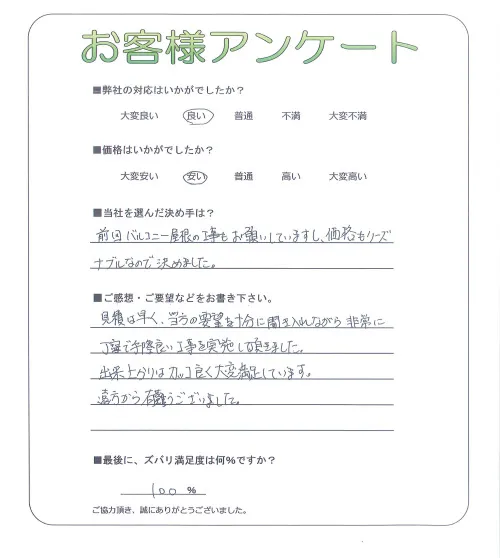 お客様アンケート
■弊社の対応はいかがでしたか？
大変良い 良い 普通 不満 大変不満
■価格はいかがでしたか？
大変安い 安い 普通 高い 大変高い
■当社を選んだ決め手は？
前回バルコニー屋根の工事もお願いしていますし、価格もリーズ
ナブルなので決めました。
■ご感想・ご要望などをお書き下さい。
見積は早く、当方の要望を十分に聞き入れながら非常に
丁寧で手際良い工事を実施して頂きました。
出来上がりはカッコ良く大変満足しています。
遠方から有難うございました。
■最後に、ズバリ満足度は何％ですか？
100 %
ご協力頂き、誠にありがとうございました。